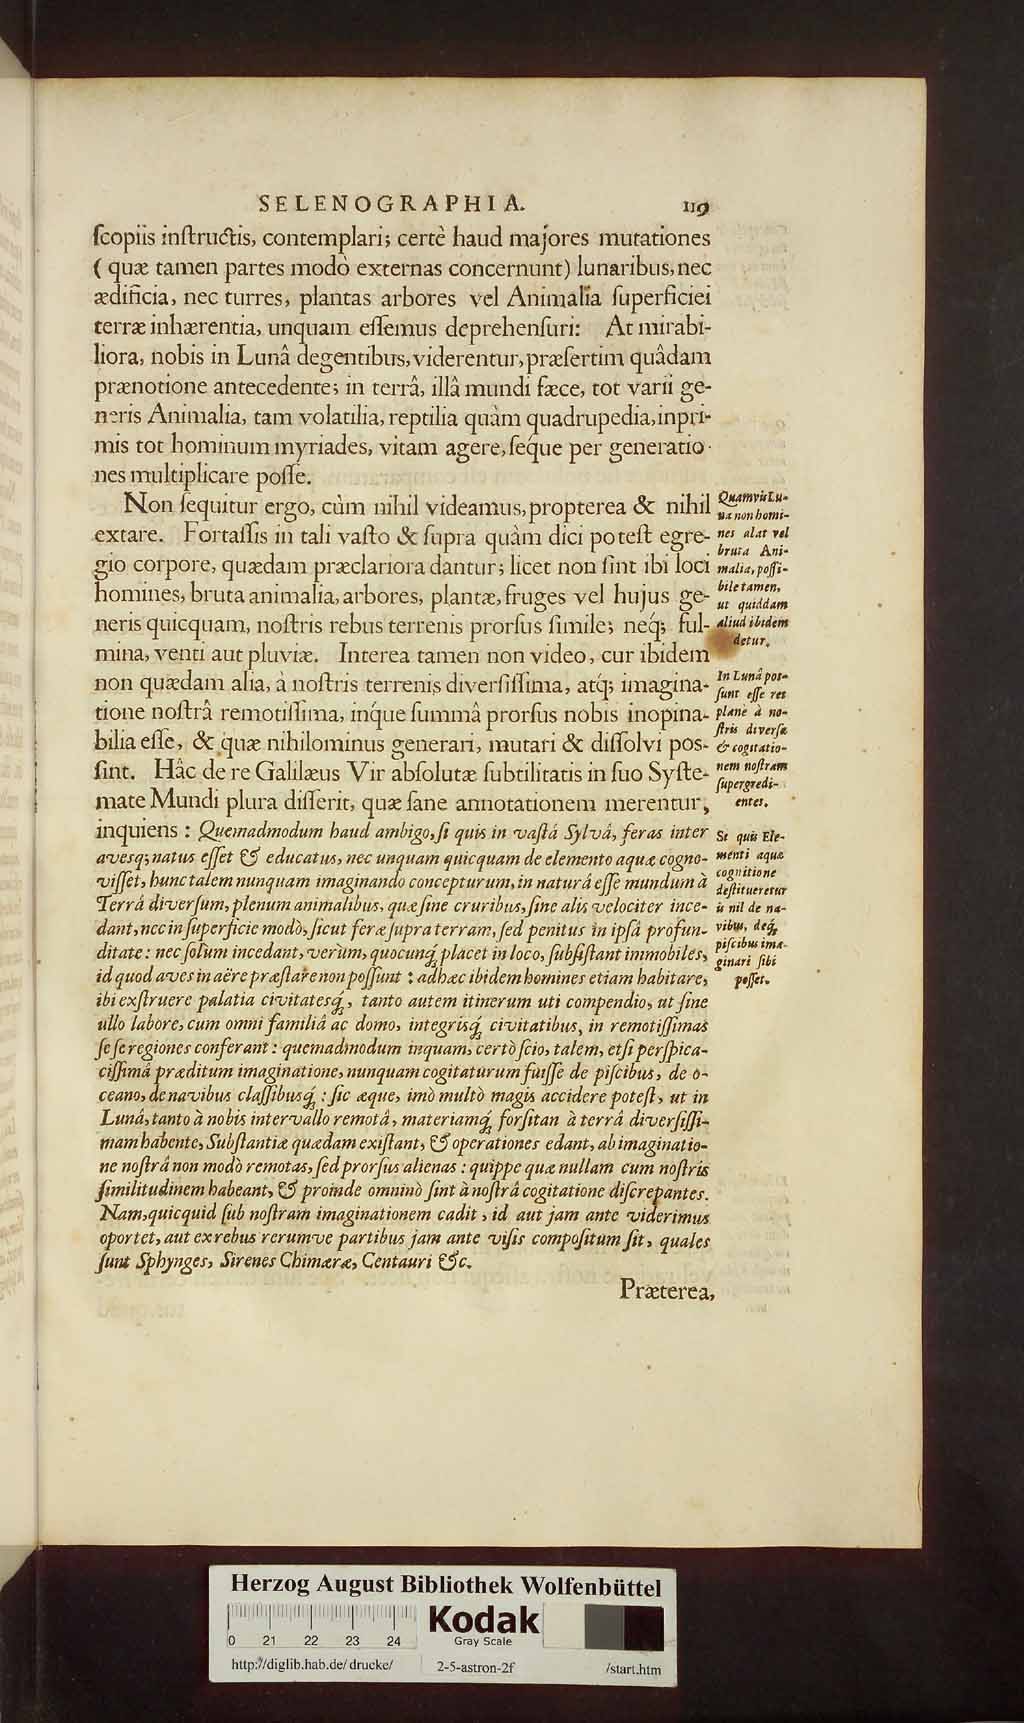 SELENOGRAPHIA. 119
ſcopiis inſtructis, contemplari; certè haud majores mutationes
( quæ tamen partes modò externas concernunt) lunaribus, nec
ædificia, nec turres, plantas arbores vel Animalia ſuperficiei
terræ inhærentia, unquam eſſemus deprehenſuri: At mirabi-
liora, nobis in Lunâ degentibus, viderentur, præſertim quâdam
prænotione antecedente; in terrâ, illâ mundi fæce, tot varii ge-
neris Animalia, tam volatilia, reptilia quàm quadrupedia, inpri-
mis tot hominum myriades, vitam agere, ſeq́ue per generatio-
nes multiplicare poſſe.
Non ſequitur ergo, cùm nihil videamus, propterea & nihil
extare. Fortaſſis in tali vaſto & ſupra quàm dici poteſt egre-
gio corpore, quædam præclariora dantur; licet non ſint ibi loci
homines, bruta animalia, arbores, plantæ, fruges vel hujus ge-
neris quicquam, noſtris rebus terrenis prorſus ſimile; neq́; ful-
mina, venti aut pluviæ. Interea tamen non video, cur ibidem
non quædam alia, à noſtris terrenis diverſiſſima, atq́; imagina-
tione noſtrâ remotiſſima, inq́ue ſummâ prorſus nobis inopina-
bilia eſſe, & quæ nihilominus generari, mutari & diſſolvi poſ-
ſint. Hâc de re Galilæus Vir abſolutæ ſubtilitatis in ſuo Syſte-
mate Mundi plura diſſerit, quæ ſane annotationem merentur,
inquiens : Quemadmodum haud ambigo, ſi quis in vaſtâ Sylvâ, feras inter
avesq́; natus eſſet & educatus, nec unquam quicquam de elemento aquæ cogno-
viſſet, hunc talem nunquam imaginando concepturum, in naturâ eſſe mundum à
Terrâ diverſum, plenum animalibus, quæ ſine cruribus, ſine alis velociter ince-
dant, nec in ſuperficie modò, ſicut feræ ſupra terram, ſed penitus in ipſâ profun-
ditate : nec ſolùm incedant, verùm, quocunq́ placet in loco, ſubſiſtant immobiles,
id quod aves in aëre præſtare non poſſunt : adhæc ibidem homines etiam habitare,
ibi exſtruere palatia civitatesq́, tanto autem itinerum uti compendio, ut ſine
ullo labore, cum omni familiâ ac domo, integrisq́ civitatibus, in remotiſſimas
ſeſe regiones conferant : quemadmodum inquam, certò ſcio, talem, etſi perſpica-
ciſſimâ præditum imaginatione, nunquam cogitaturum fuiſſe de piſcibus, de o-
ceano, de navibus claſſibusq́ : ſic æque, imò multò magis accidere poteſt, ut in
Lunâ, tanto à nobis intervallo remotâ, materiamq́ forſitan à terrâ diverſiſſi-
mam habente, Subſtantiæ quædam exiſtant, & operationes edant, ab imaginatio-
ne noſtrâ non modò remotas, ſed prorſus alienas : quippe quæ nullam cum noſtris
ſimilitudinem habeant, & proinde omninò ſint à noſtrâ cogitatione diſcrepantes.
Nam, quicquid ſub noſtram imaginationem cadit, id aut jam ante viderimus
oportet, aut ex rebus rerumve partibus jam ante viſis compoſitum ſit, quales
ſunt Sphynges, Sirenes Chimæræ, Centauri &c.
Præterea,
Quamvis Lu-
na non homi-
nes alat vel
bruta Ani-
malia, poſſi-
bile tamen,
ut quiddam
aliud ibidem
detur.
In Lunâ poſ-
ſunt eſſe res
planè à no-
ſtris diverſæ
& cogitatio-
nem noſtram
ſupergredi-
entes.
Si quis Ele-
menti aquæ
cognitione
deſtitueretur
is nil de na-
vibus, deq́
piſcibus ima-
ginari ſibi
poſſet.
Herzog August Bibliothek Wolfenbüttel
0 21 22 23 24
Kodak
Gray Scale
http://diglib.hab.de/drucke/ 2-5-astron-2f /start.htm